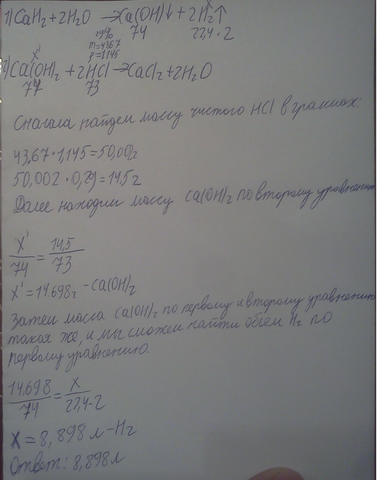 1) CaH₂ + 2H₂O → Ca(OH)₂↓ + 2H₂↑
29%
m=43,67
ρ=1,145
74
22,4·2
x'
2) Ca(OH)₂ + 2HCl → CaCl₂ + 2H₂O
74 73
Сначала найдем массу чистого HCl в граммах:
43,67·1,145=50,00г
50,002·0,29=14,5г
Далее находим массу Ca(OH)₂ по второму уравнению
x'/74 = 14,5/73
x'=14.698г - Ca(OH)₂
Затем масса Ca(OH)₂ по первому и второму уравнению
такая же, и мы сможем найти объем H₂ по
первому уравнению.
14,698/74 = x/22,4·2
x=8,898л-H₂
Ответ: 8,898л